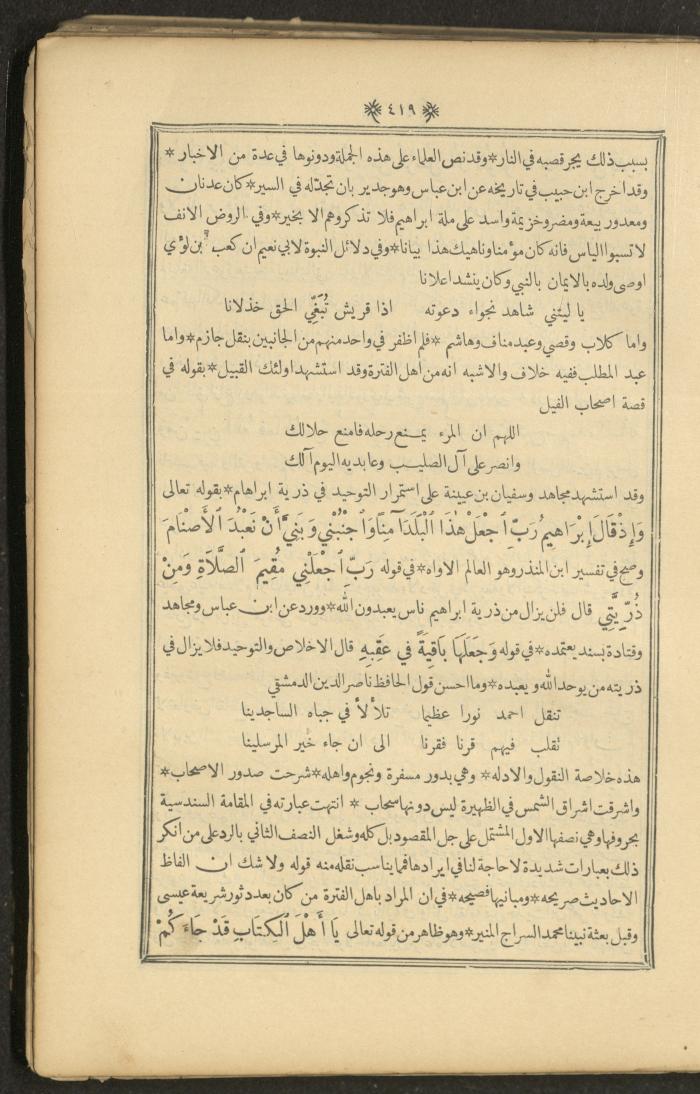 ﴿ ٤١٩ ﴾
بسبب ذلك يجر قصبه في النار * وقد نص العلماء على هذه الجملة ودونوها في عدة من الاخبار *
وقد اخرج ابن حبيب في تاريخه عن ابن عباس وهو جدير بان تجد له في السير * كان عدنان
ومعد وربيعة ومضر وخزيمة واسد على ملة ابراهيم فلا تذكروهم الا بخير * وفي الروض الانف
لا تسبوا الياس فانه كان مؤمنا وناهيك هذا بيانا * وفي دلائل النبوة لابي نعيم ان كعب بن لؤي
اوصى ولده بالايمان بالنبي وكان ينشد اعلانا
يا ليتني شاهد نجواء دعوته اذا قريش تُبَغِّي الحق خذلانا
واما كلاب وقصي وعبد مناف وهاشم * فلم اظفر في واحد منهم من الجانبين بنقل جازم * واما
عبد المطلب ففيه خلاف والاشبه انه من اهل الفترة وقد استشهد اولئك القبيل * بقوله في
قصة اصحاب الفيل
اللهم ان المرء يمنع رحله فامنع حلالك
وانصر على آل الصليب وعابديه اليوم آلك
وقد استشهد مجاهد وسفيان بن عيينة على استمرار التوحيد في ذرية ابراهام * بقوله تعالى
وَإِذْ قَالَ إِبْرَاهِيمُ رَبِّ ٱجْعَلْ هٰذَا ٱلْبَلَدَ آمِنًا وَٱجْنُبْنِي وَبَنِيَّ أَنْ نَعْبُدَ ٱلأَصْنَامَ
وصح في تفسير ابن المنذر وهو العالم الاواه * في قوله رَبِّ ٱجْعَلْنِي مُقِيمَ ٱلصَّلَاةِ وَمِنْ
ذُرِّيَّتِي قال فلن يزال من ذرية ابراهيم ناس يعبدون الله * وورد عن ابن عباس ومجاهد
وقتادة بسند يعتمده * في قوله وَجَعَلَهَا بَاقِيَةً فِي عَقِبِهِ قال الاخلاص والتوحيد فلا يزال في
ذريته من يوحد الله ويعبده * وما احسن قول الحافظ ناصر الدين الدمشقي
تنقل احمد نورا عظيما تلألأ في جباه الساجدينا
تقلب فيهم قرنا فقرنا الى ان جاء خير المرسلينا
هذه خلاصة النقول والادله * وهي بدور مسفرة ونجوم واهله * شرحت صدور الاصحاب *
واشرقت اشراق الشمس في الظهيرة ليس دونها سحاب * انتهت عبارته في المقامة السندسية
بحروفها وهي نصفها الاول المشتمل على جل المقصود بل كله وشغل النصف الثاني بالرد على من انكر
ذلك بعبارات شديدة لا حاجة لنا في ايرادها فما يناسب نقله منه قوله ولا شك ان الفاظ
الاحاديث صريحه * ومبانيها فصيحه * في ان المراد باهل الفترة من كان بعد دثور شريعة عيسى
وقبل بعثة نبينا محمد السراج المنير * وهو ظاهر من قوله تعالى يَا أَهْلَ ٱلْكِتَابِ قَدْ جَاءَكُمْ